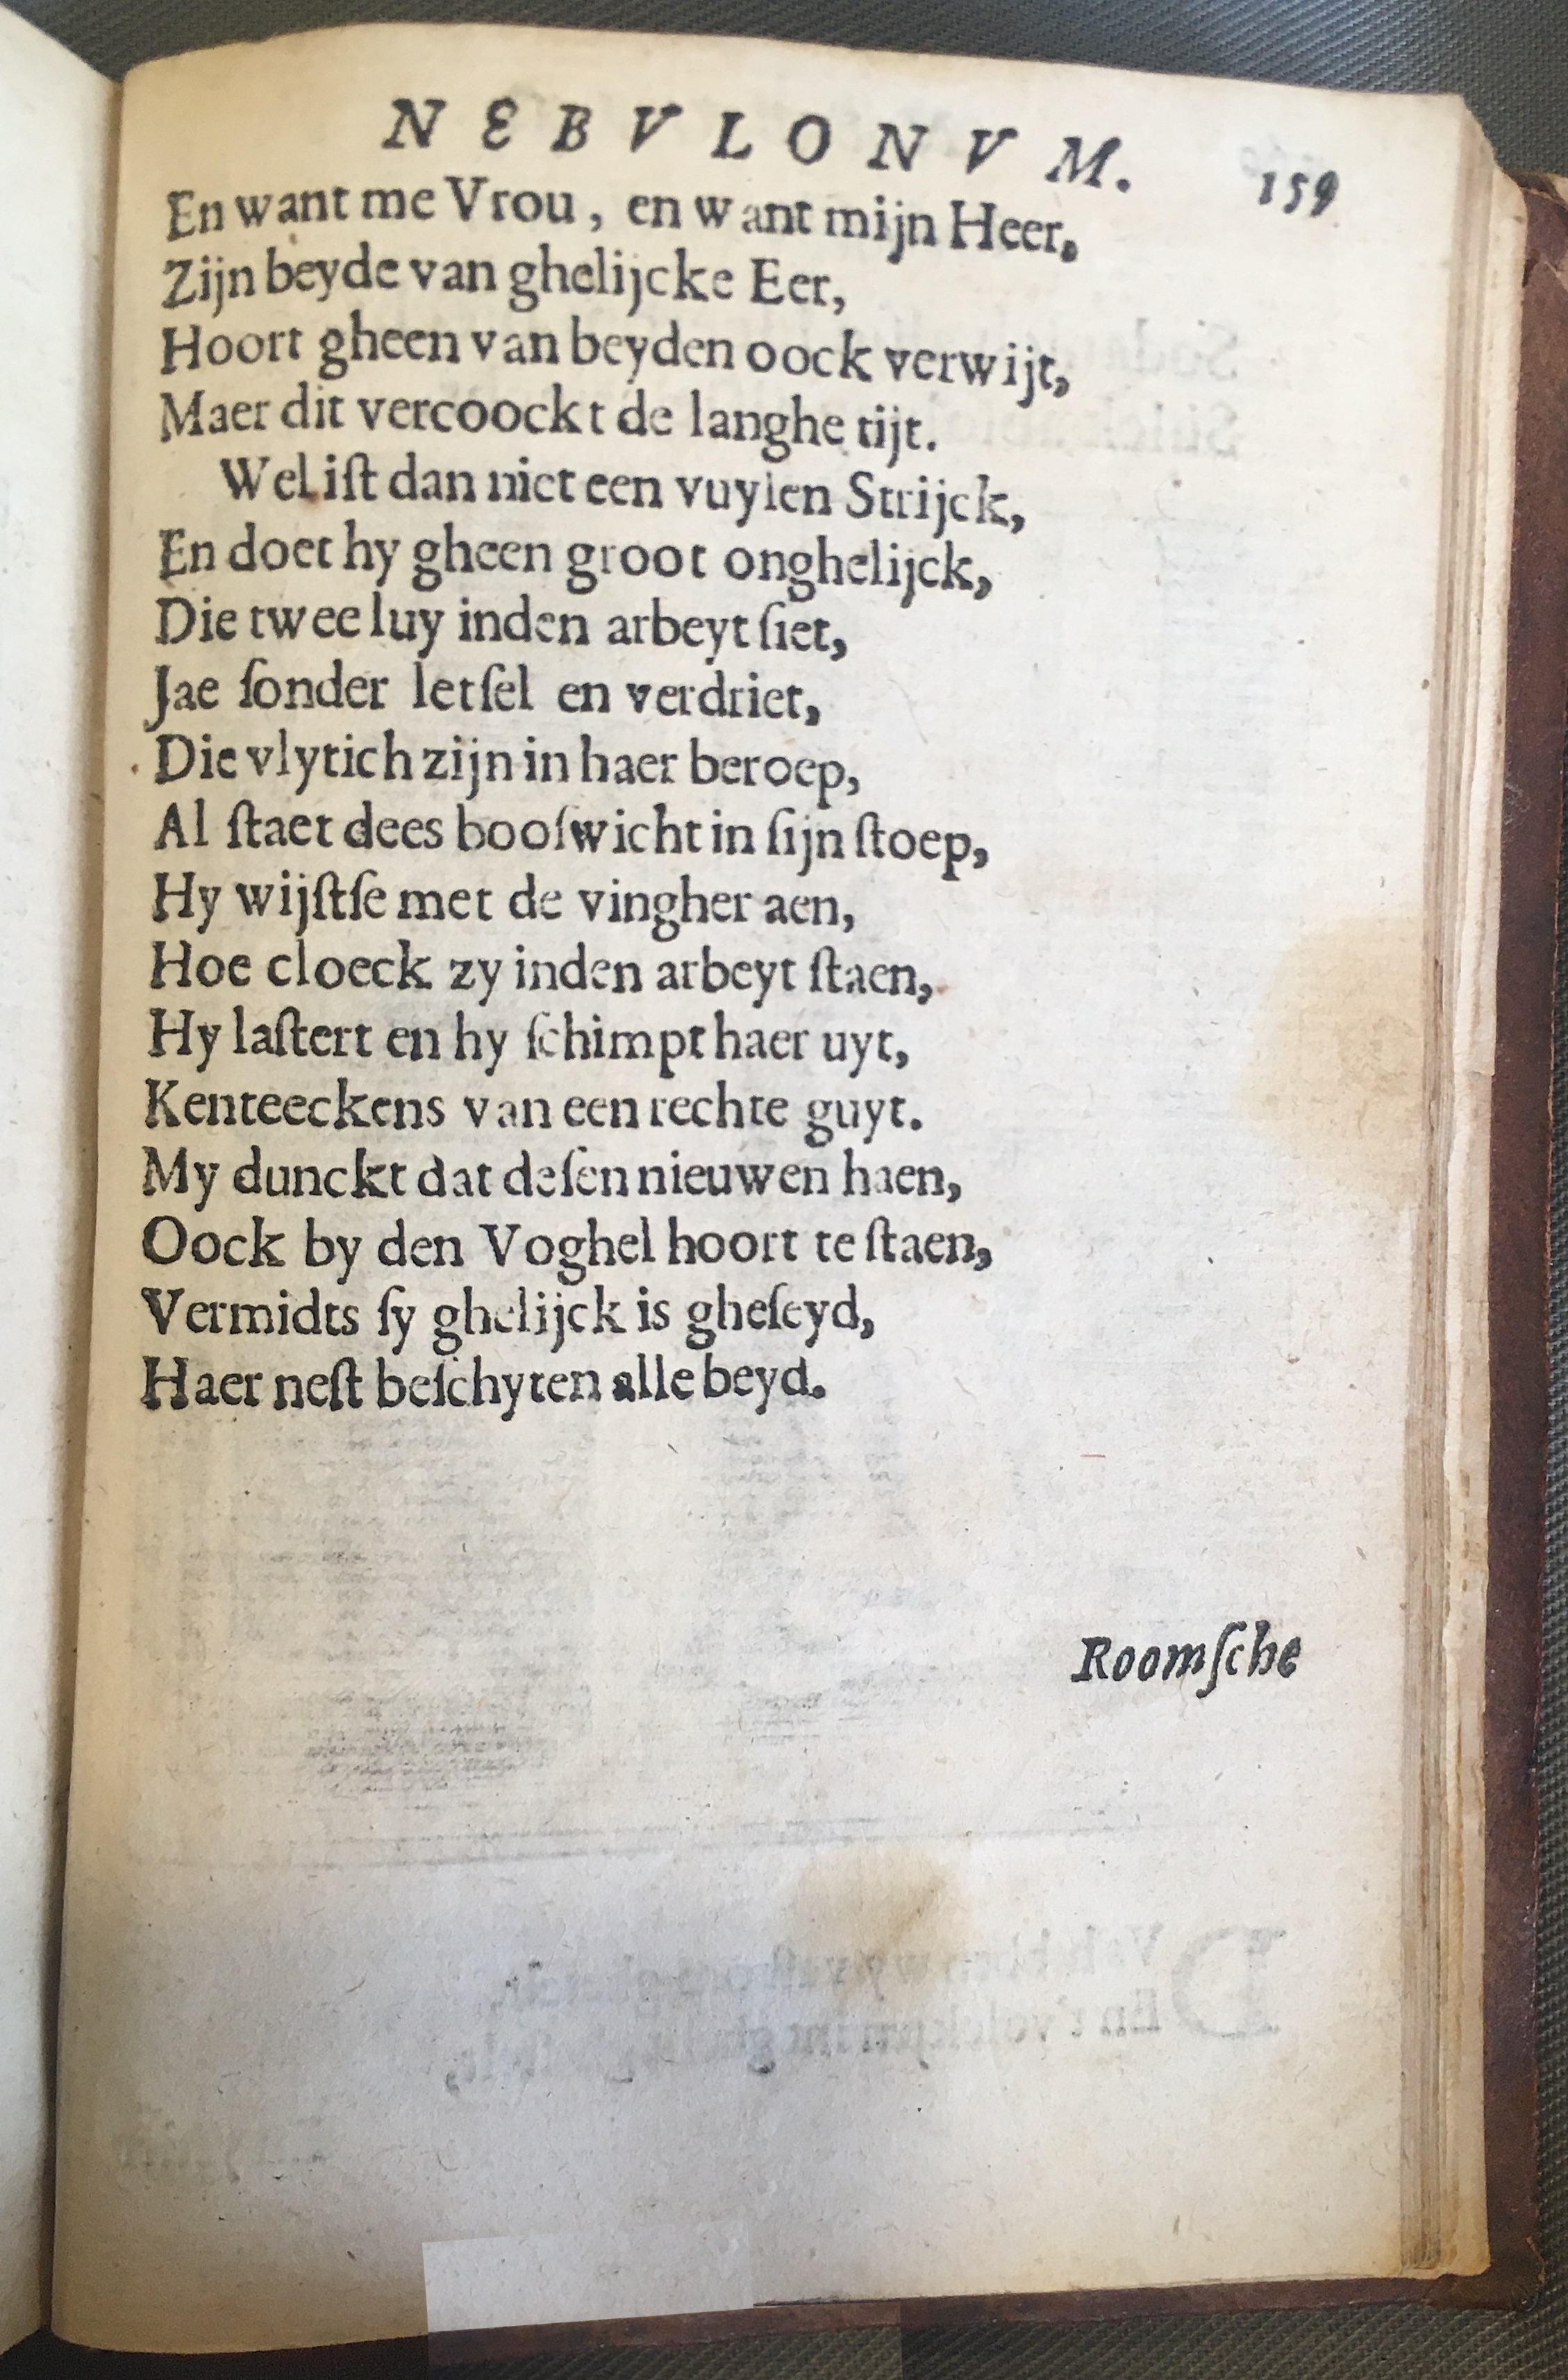 NEBVLONVM. 159
En want me Vrou, en want mijn Heer,
Zijn beyde van ghelijcke Eer,
Hoort gheen van beyden oock verwijt,
Maer dit vercoockt de langhe tijt.
Wel iſt dan niet een vuylen Strijck,
En doet hy gheen groot onghelijck,
Die twee luy inden arbeyt ſiet,
Jae ſonder letſel en verdriet,
Die vlytich zijn in haer beroep,
Al ſtaet dees booſwicht in ſijn ſtoep,
Hy wijſtſe met de vingher aen,
Hoe cloeck zy inden arbeyt ſtaen,
Hy laſtert en hy ſchimpt haer uyt,
Kenteeckens van een rechte guyt.
My dunckt dat deſen nieuwen haen,
Oock by den Voghel hoort te ſtaen,
Vermidts ſy ghelijck is gheſeyd,
Haer neſt beſchyten alle beyd.
Roomſche